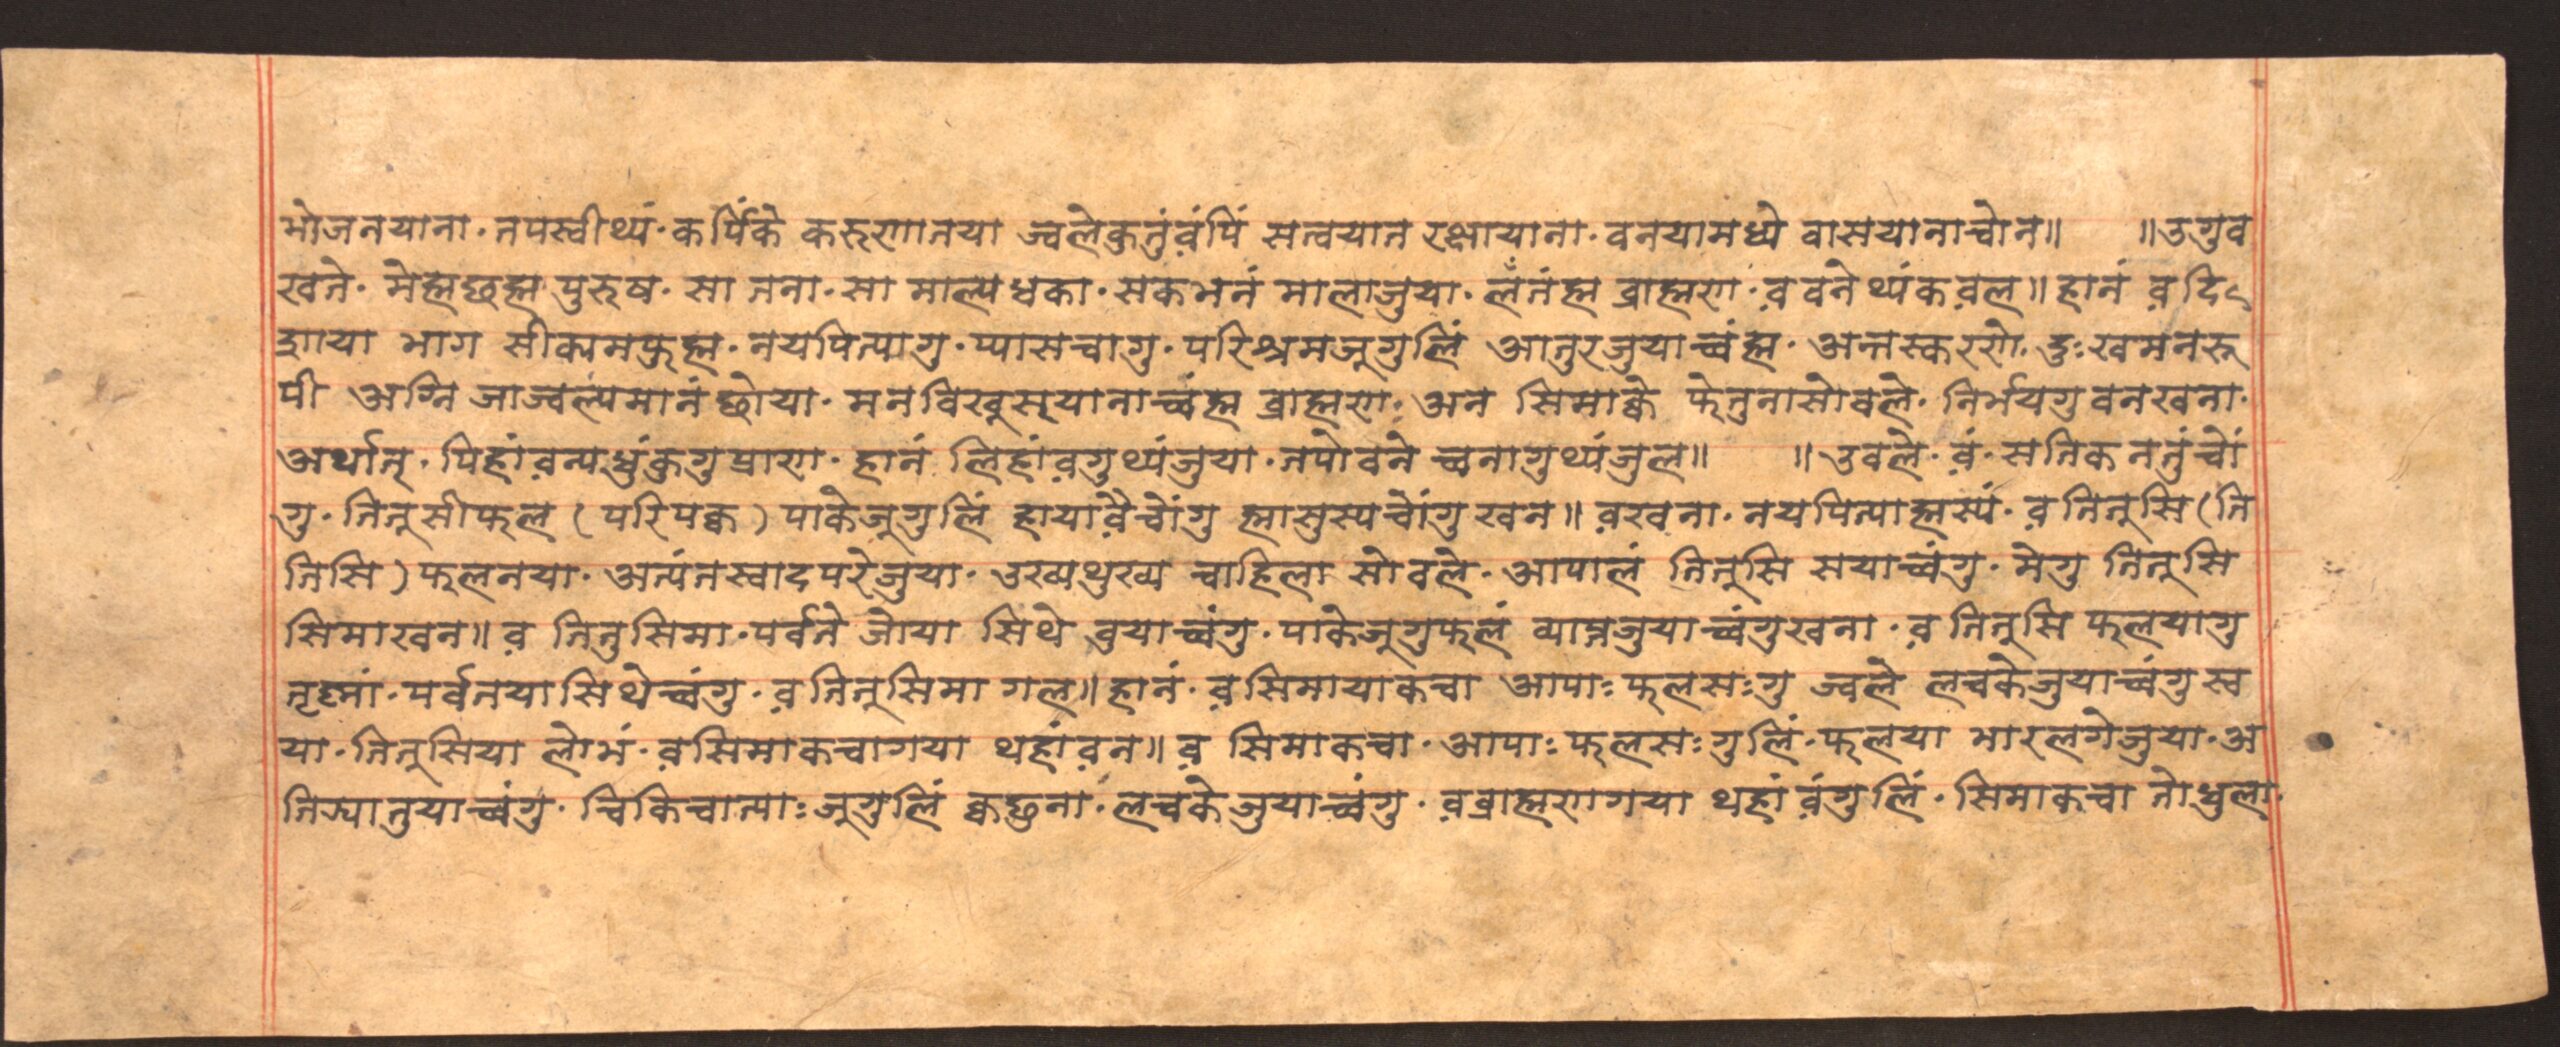 भोजनयाना· तपस्वीथ्यं· कपिंके करुणातया ज्वलेकुतुंव़ंपिं सत्वयात रक्षायाना· वनयामध्ये वासयानाच्वोन॥ ॥उगुव
खते· मेह्मछह्म पुरुष· सा तना· सा माल्यधका· सकभनं मालाजुया· लँतंह्म ब्राह्मण· व़ वने थ्यंक व़ल॥ हानं व़ दि
द्गाया भाग सीक्यमफुह्म· नयपित्यागु· प्यासचागु· परिश्रमजूगुलिं आतुरजुयाच्वंह्म· अन्तस्करणे· दुःखमनरू
पी अग्नि जाज्वल्यमानं छोया· मनविखुसूयानाच्वंह्म ब्राह्मण· अन सिमाक्वे फेतुनासोवले· निर्भयगु वनखना·
अर्थात्· पिहांव़न्यधुंकुगु प्राण· हानं लिहांव़गुथ्यंजुया· तपोवने च्वनागुथ्यंजुल॥ ॥उवले· व़ं· सतिक नतुंच्वों
गु· तितुसीफल (परिपक्व) पाकेजूगुलिं हायाव़ैच्वोंगु ह्मासुस्यच्वोंगु खन॥ व़खना· नयपित्याह्मस्यं· व़ तितुसि (ति
तिसि) फलनया· अत्यंतस्वादपरेजुया· उख्यथुख्य चाहिला सोवले· आपालं तितुसि सयाच्वंगु· मेगु तितुसि
सिमाखन॥ व़ तितुसिमा· पर्वते जोया सिथे वुयाच्वंगु· पाकेजूगुफलं व्याप्तजुयाच्वंगुखना· व़ तितुसि फलयागु
तृष्णां· पर्वतयासिथेच्वंगु· व़ तितुसिमा गल॥ हानं· व़सिमायाकचा आपाः फलसःगु ज्वले लचकेजुयाच्वंगु स्व
या· तितुसिया लोभं· व़सिमाकचागया थहांव़न॥ व़ सिमाकचा· आपाः फलसःगुलिं· फलया भारलगेजुया· अ
तिज्यातुयाच्वंगु· चिकिचात्याः जूगुलिं क्वछुना· लचकेजुयाच्वंगु· व़ब्राह्मणगया थहांव़ंगुलिं· सिमाकचा तोधुला·